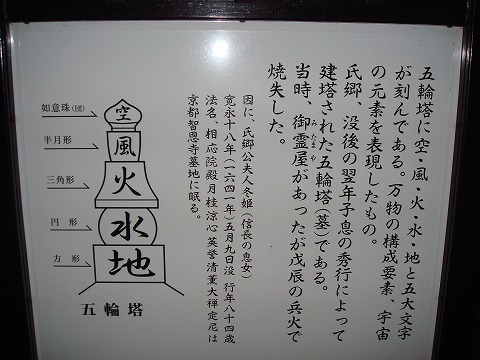 五輪塔に空・風・火・水・地と五大文字
が刻んである。万物の構成要素、宇宙
の元素を表現したもの。
氏郷、没後の翌年子息の秀行によって
建塔された五輪塔(墓)である。
当時、御霊屋があったが戊辰の兵火で
みたまや
焼失した。
因に、氏郷公夫人冬姫(信長の息女)
寛永十八年(一六四一年)五月九日没 行年八十四歳
法名、相応院殿月桂涼心英誉清薫大禅定尼は
京都智恩寺墓地に眠る。
如意珠(団)
空
半月形
風
三角形
火
円 形
水
方 形
地
五輪塔